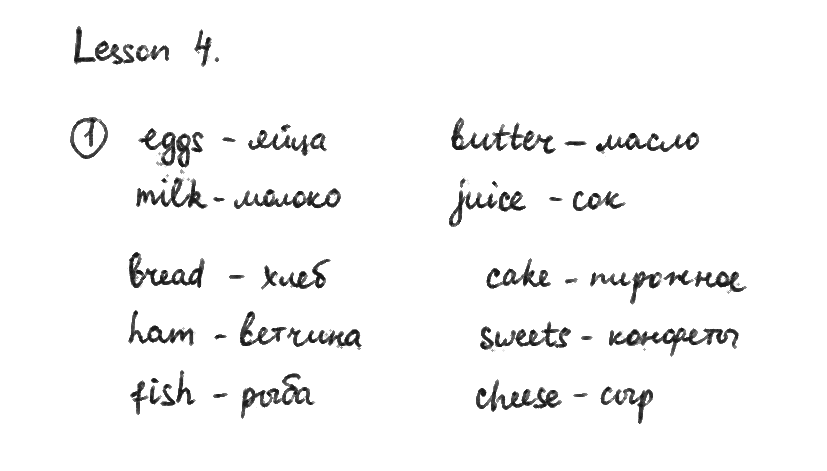 Lesson 4.
① eggs - яйца butter - масло
milk - молоко juice - сок
bread - хлеб cake - пирожное
ham - ветчина sweets - конфеты
fish - рыба cheese - сыр